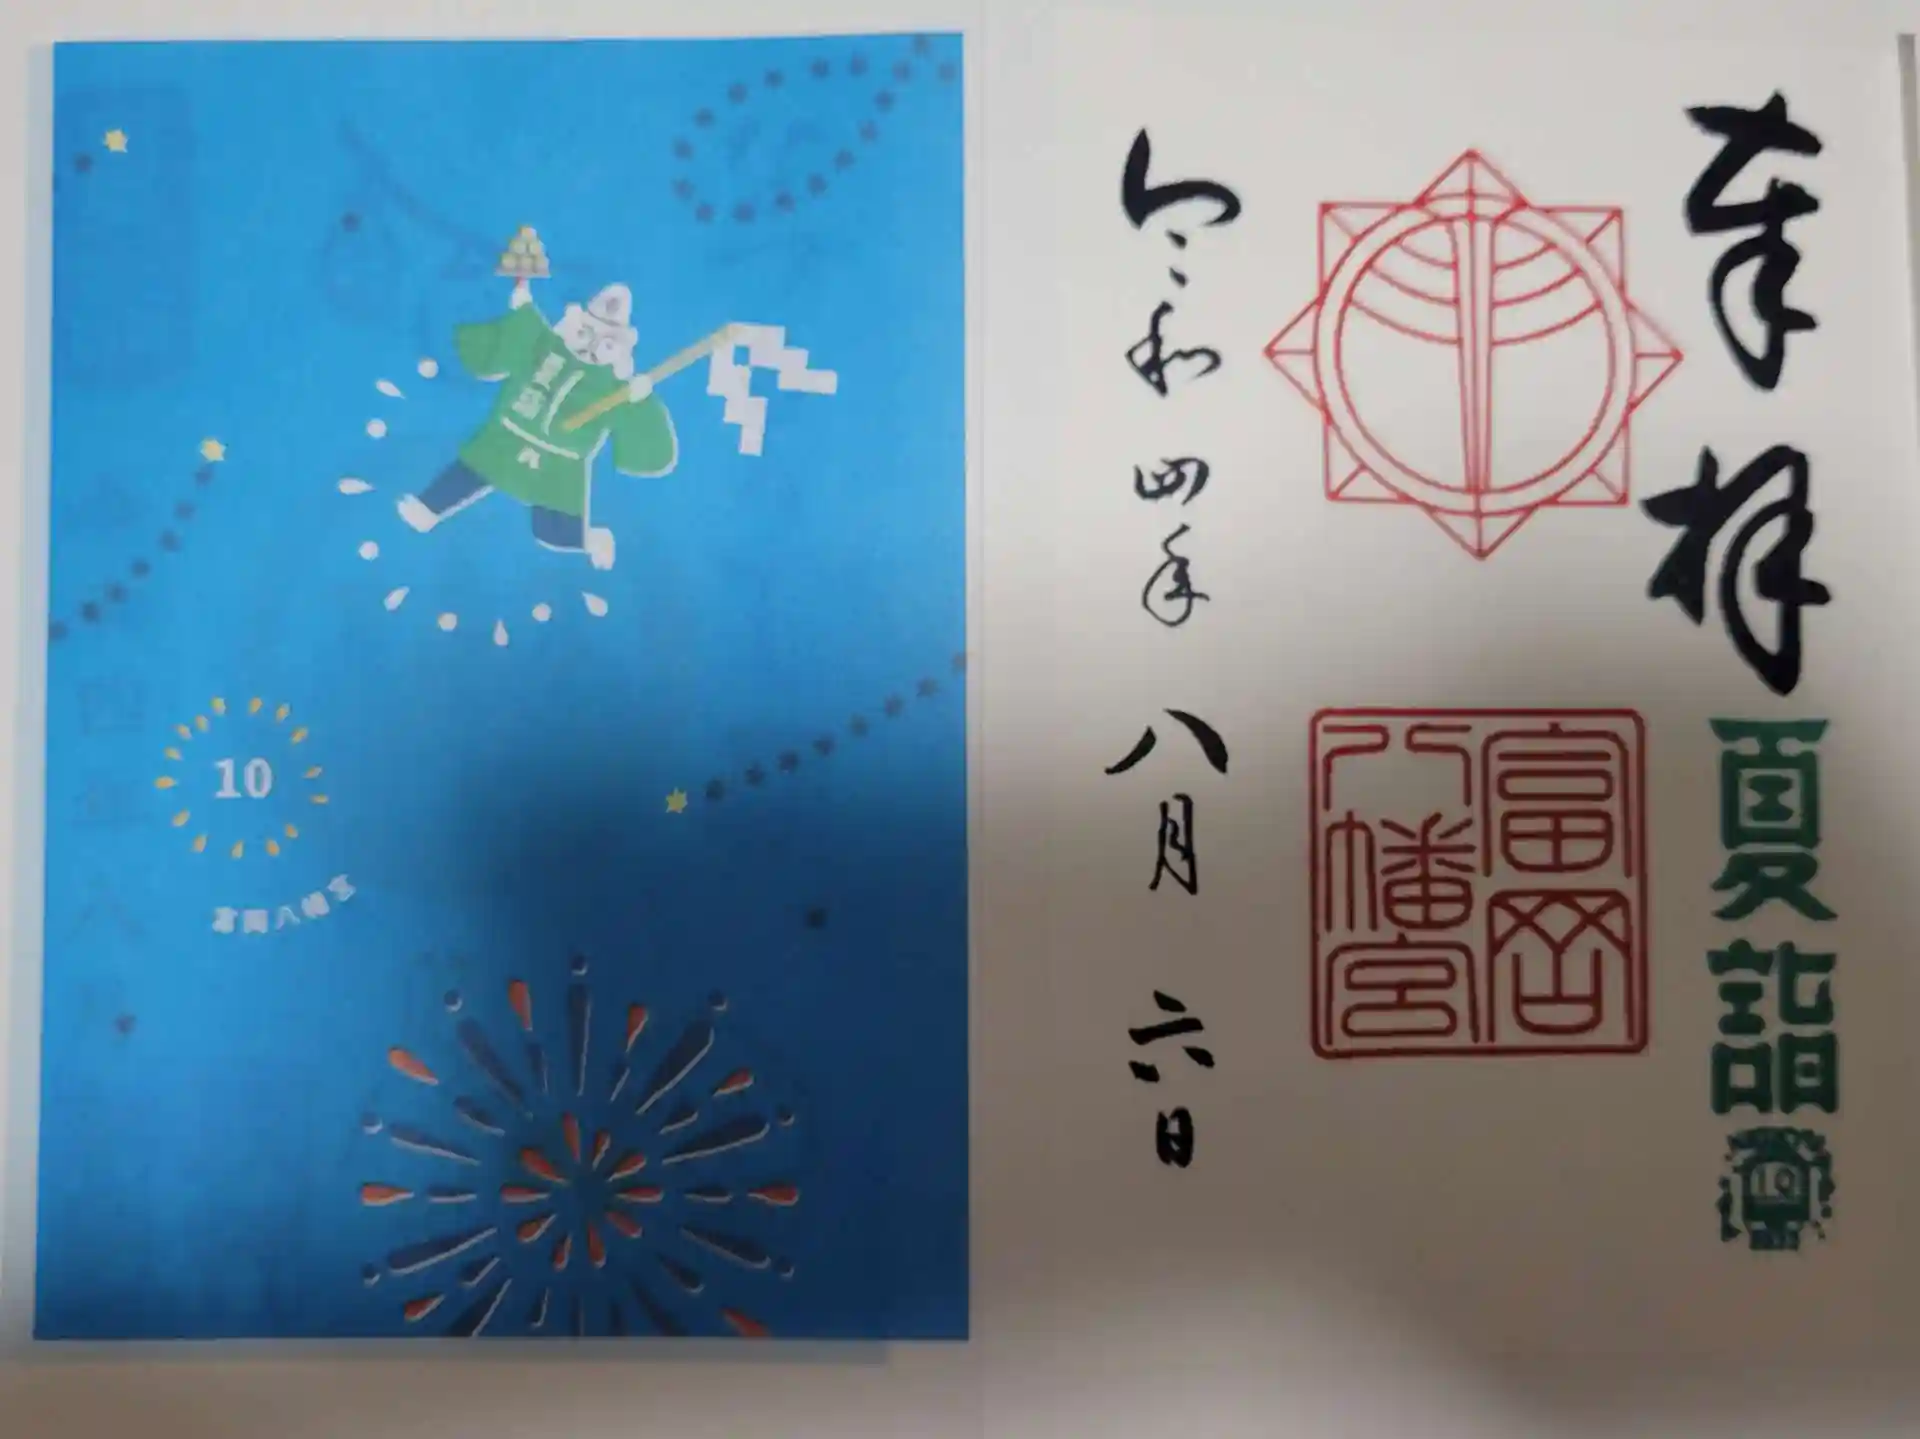 奉拝
夏詣
富岡八幡宮
令和四年八月六日
10
富岡八幡宮